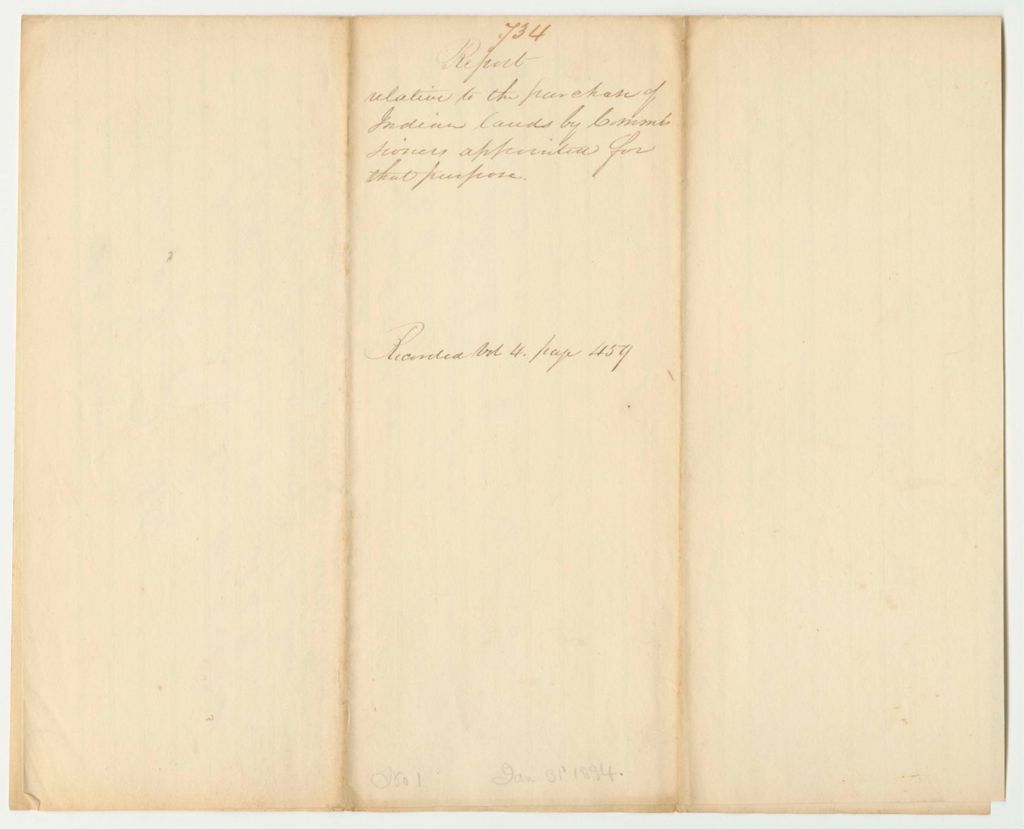 734
Report
relative to the purchase of
Indian lands by Commis
sioners appointed for
that purpose.
Recorded Vol 4. page 459
No 1 Jan 31 1834.